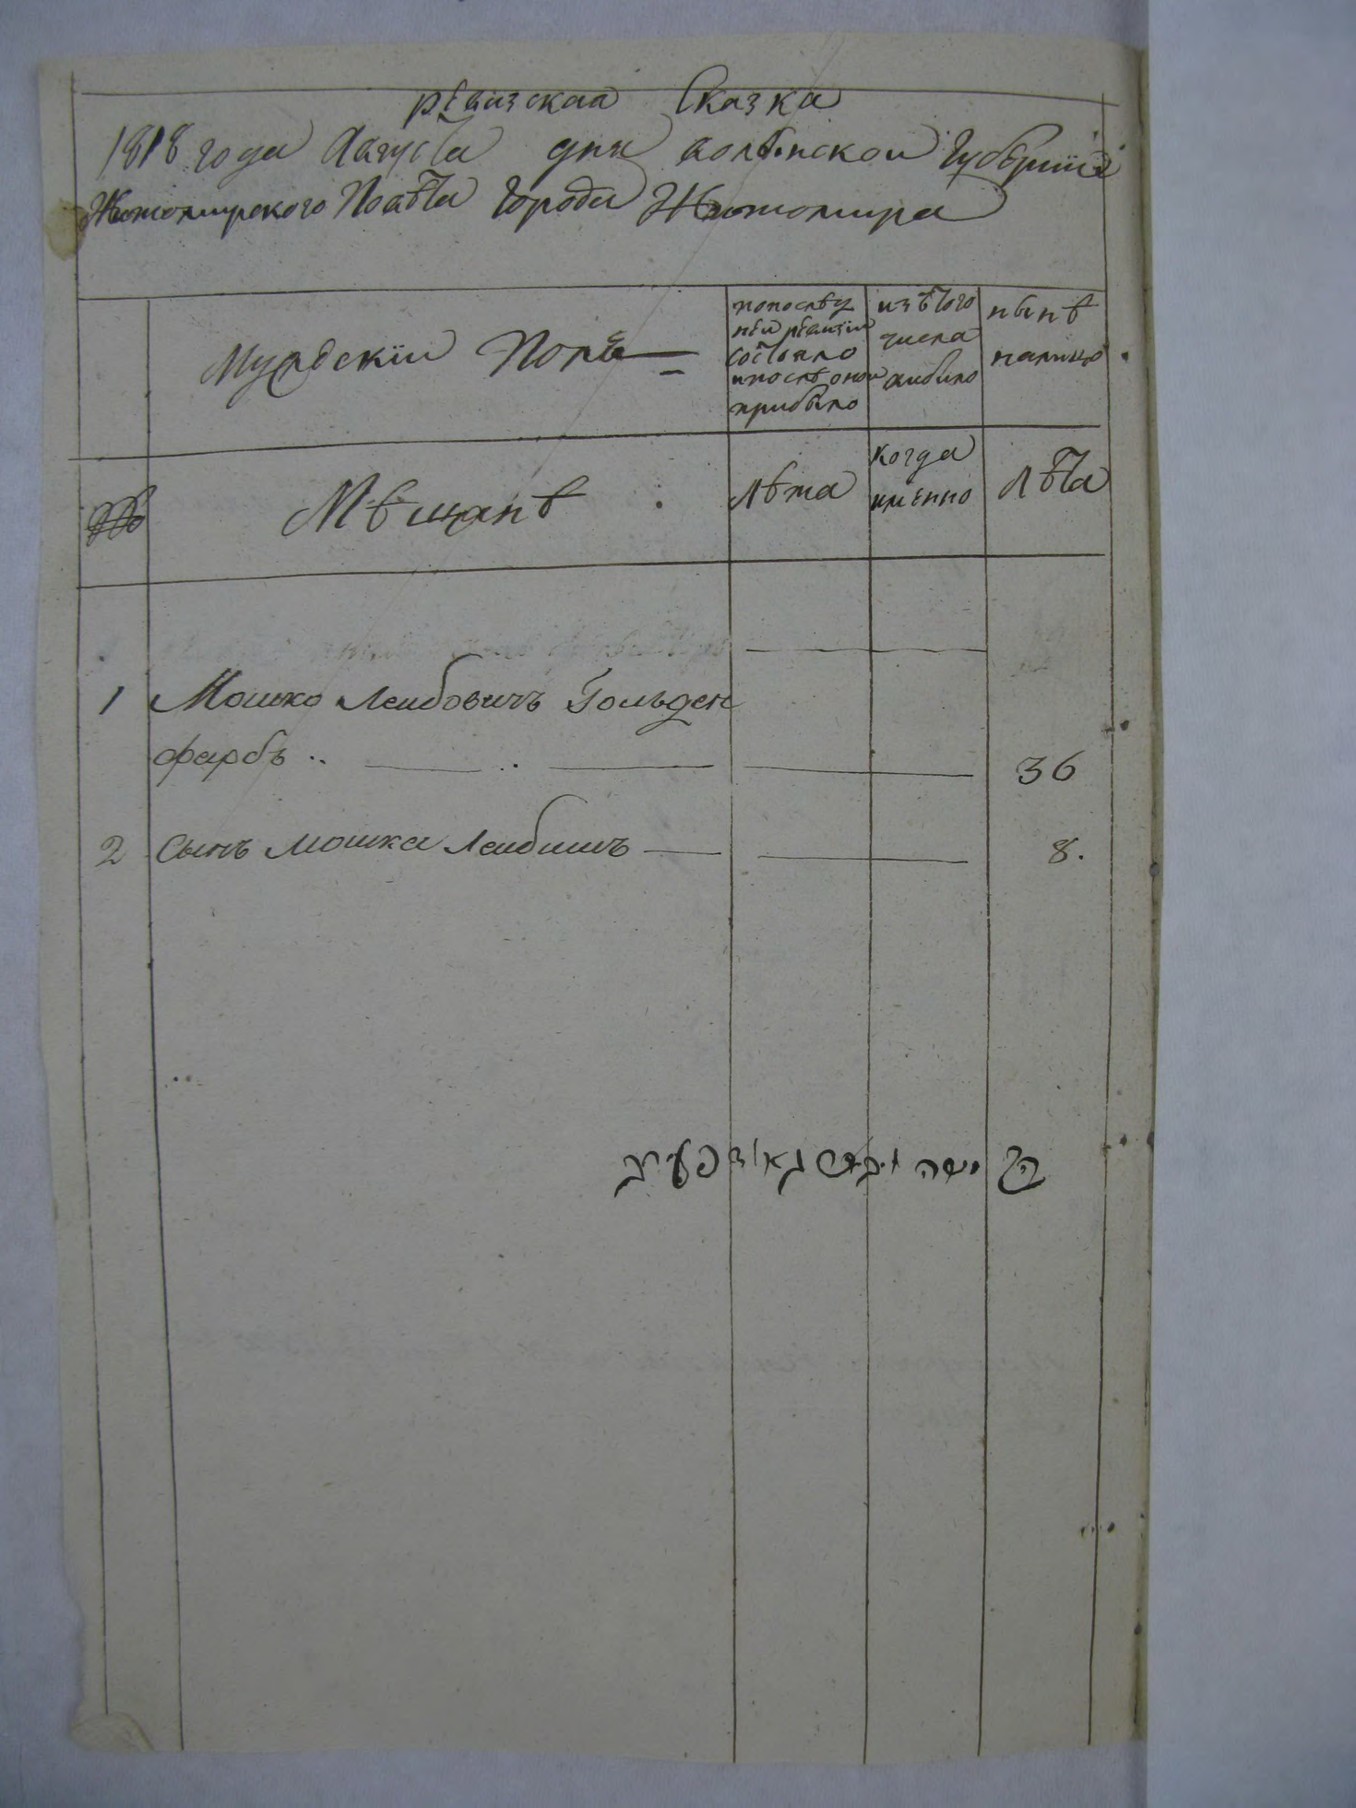 ревизская Сказка
1818 года Августа дня волынскои Губернiи
Житомирского Повѣта Города Житомира
Мужескiи Полъ
попослѣд
неи ревизiи
состояло
ипослѣ онои
прибыло
изѣтого
числа
выбыло
нынѣ
налицо
Мѣщанѣ
лѣта
когда
имѣнно
лѣта
1 Мошко Леибовичъ Гольден
фарбъ 36
2 Сынъ мошка Леибишъ 8.
משה